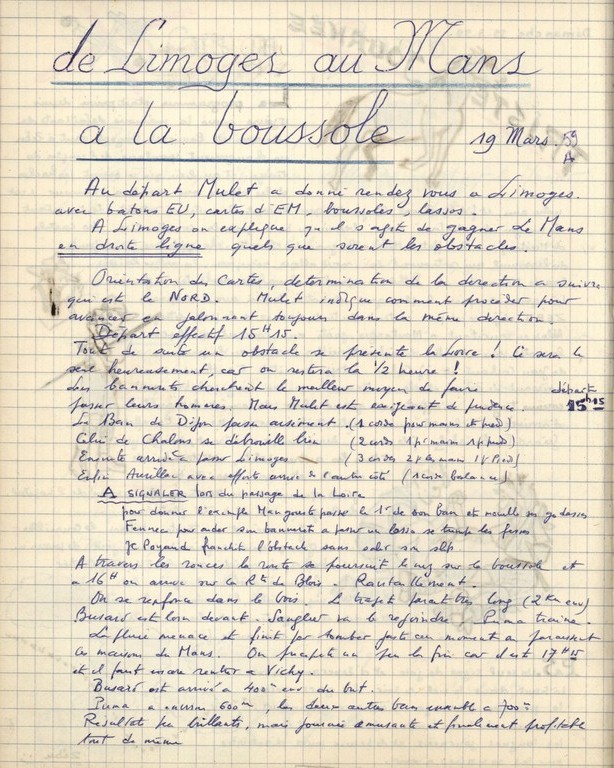 de Limoges au Mans
a la boussole
19 Mars 59
Au départ Mulet a donné rendez vous a Limoges.
avec batons EU, cartes d'EM, boussoles, lassos.
A Limoges on explique qu'il s'agit de gagner Le Mans
en droite ligne quels que soient les obstacles.
Orientation des Cartes, détermination de la direction a suivre
qui est le NORD. Mulet indique comment procéder pour
avancer en jalonnant toujours dans la même direction.
Départ effectif 15H15.
Tout de suite un obstacle se présente la Loire ! Ce sera le
seul heureusement, car on restera la 1/2 heure !
Les bannerets cherchent le meilleur moyen de faire
départ
passer leurs hommes. Mais Mulet est exigeant de prudence.
15H15
Le Ban de Dijon passe aisément. (1 corde pour mains et pied)
Celui de Chalons se débrouille bien (2 cordes 1 pr mains 1 pr pied)
Ensuite arrive a passer Limoges (3 cordes 2 pr les mains 1 pr Pied)
Enfin Aurillac avec efforts arrive de l'autre côté (1 corde balance)
A SIGNALER lors du passage de la Loire
pour donner l'exemple Mangouste passe le 1er de son ban et mouille ses godasses
Fennec pour aider son banneret a passer un lasso se trempe les fesses
Je Royaud franchit l'obstacle sans salir son slip
A travers les ronces la route se poursuit le nez sur la boussole et
a 16H on arrive sur la Rte de Blois. Ravitaillement.
On se renfonce dans le bois. Le trajet parait très long (2 Km env)
Busard est loin devant. Sanglier va le rejoindre. Puma traine.
La pluie menace et finit par tomber juste au moment ou paraissent
les maisons du Mans. On precipite un peu la fin car il est 17H15
et il faut encore rentrer a Vichy.
Busard est arrivé a 400m env du but.
Puma a environ 600m, les deux autres bans ensemble a 700m
Resultats peu brillants, mais journée amusante et finalement profitable
tout de même